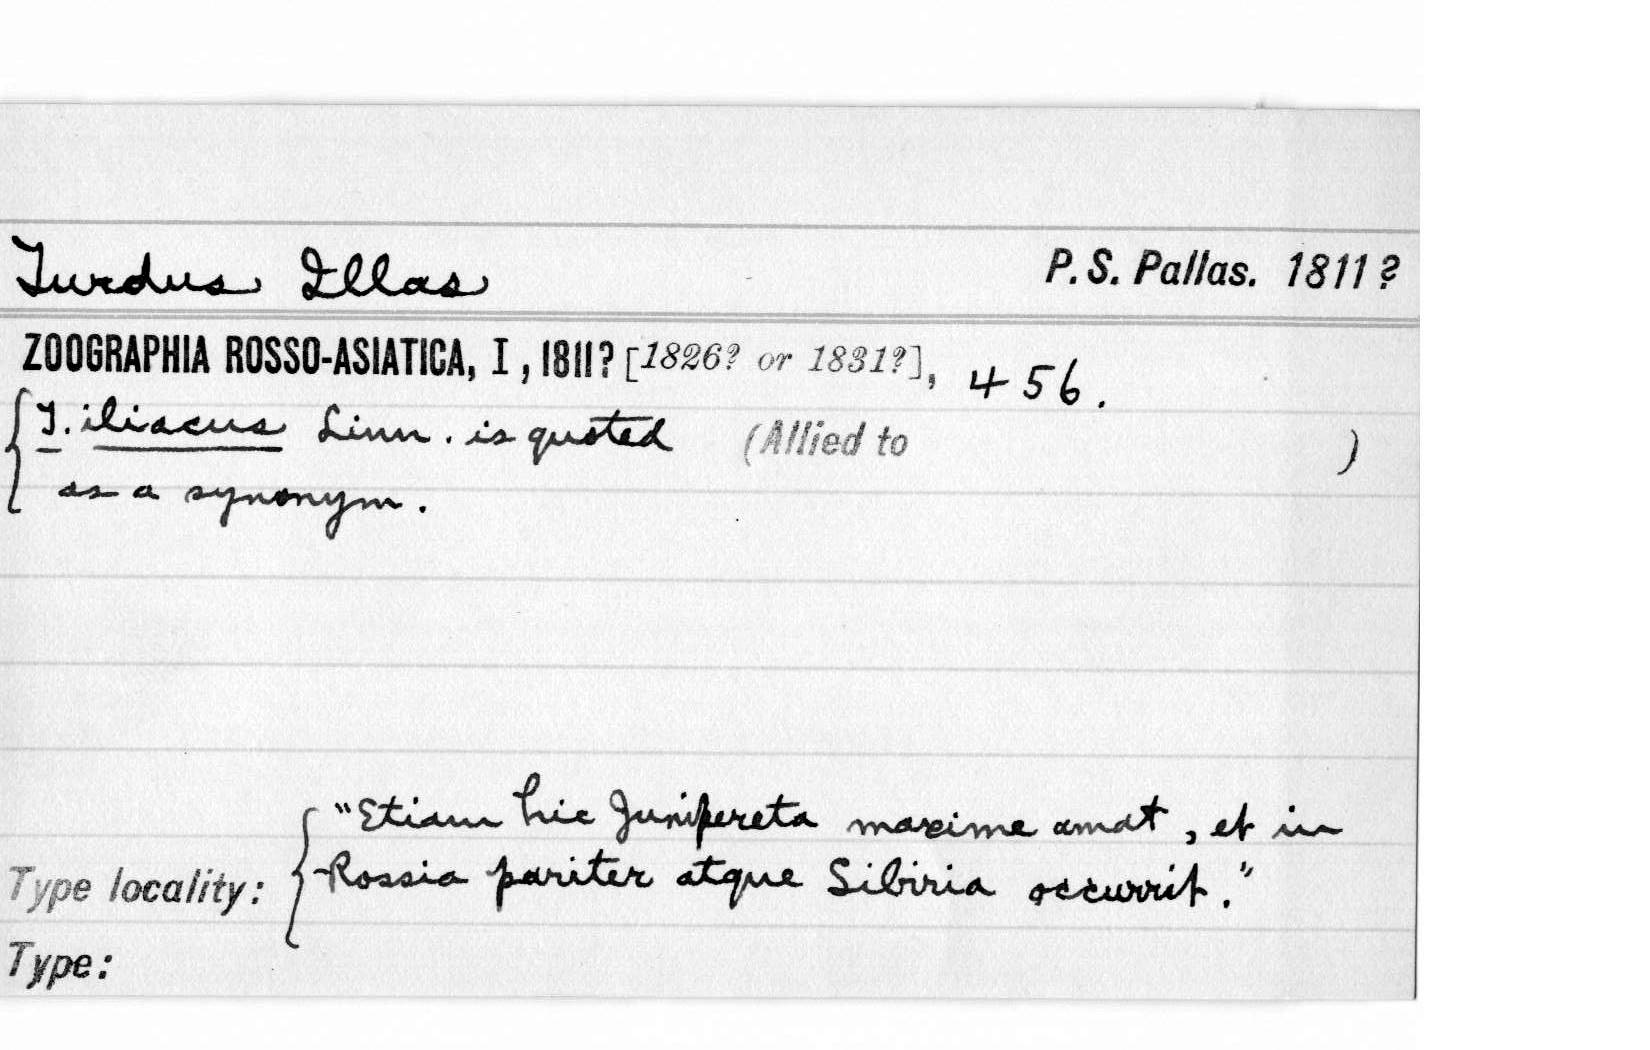 Turdus Illas P. S. Pallas. 1811?
ZOOGRAPHIA ROSSO-ASIATICA, I, 1811? [1826? or 1831?], 456.
T. iliacus Linn. is quoted (Allied to )
as a synonym.
"Etiam hic Junipereta maxime amat, et in
Type locality: Rossia pariter atque Sibiria occurrit."
Type: